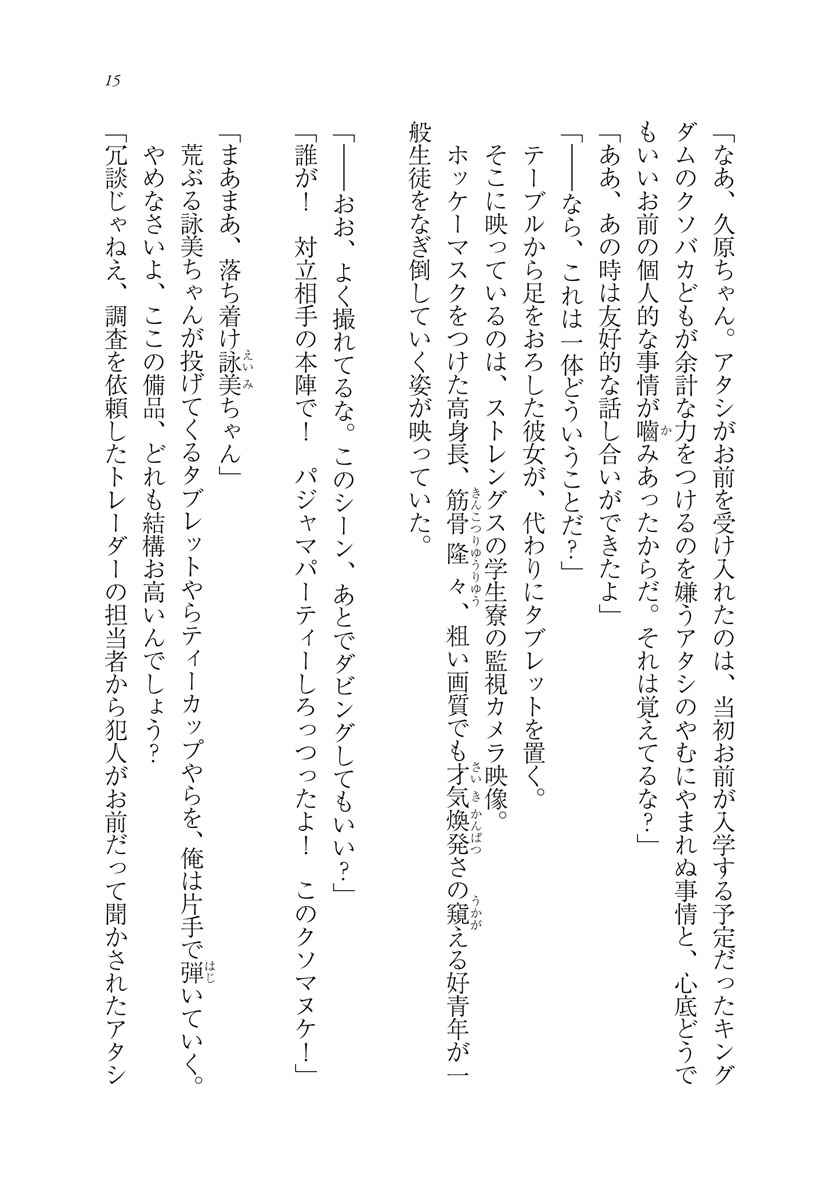 15
「なあ、久原ちゃん。アタシがお前を受け入れたのは、当初お前が入学する予定だったキング
ダムのクソバカどもが余計な力をつけるのを嫌うアタシのやむにやまれぬ事情と、心底どうで
もいいお前の個人的な事情が嚙みあったからだ。それは覚えてるな？」
「ああ、あの時は友好的な話し合いができたよ」
「――なら、これは一体どういうことだ？」
テーブルから足をおろした彼女が、代わりにタブレットを置く。
そこに映っているのは、ストレングスの学生寮の監視カメラ映像。
ホッケーマスクをつけた高身長、筋骨隆々、粗い画質でも才気煥発さの窺える好青年が一
般生徒をなぎ倒していく姿が映っていた。
「――おお、よく撮れてるな。このシーン、あとでダビングしてもいい？」
「誰が！　対立相手の本陣で！　パジャマパーティーしろっつったよ！　このクソマヌケ！」
「まあまあ、落ち着け詠美ちゃん」
荒ぶる詠美ちゃんが投げてくるタブレットやらティーカップやらを、俺は片手で弾いていく。
やめなさいよ、ここの備品、どれも結構お高いんでしょう？
「冗談じゃねえ、調査を依頼したトレーダーの担当者から犯人がお前だって聞かされたアタシ